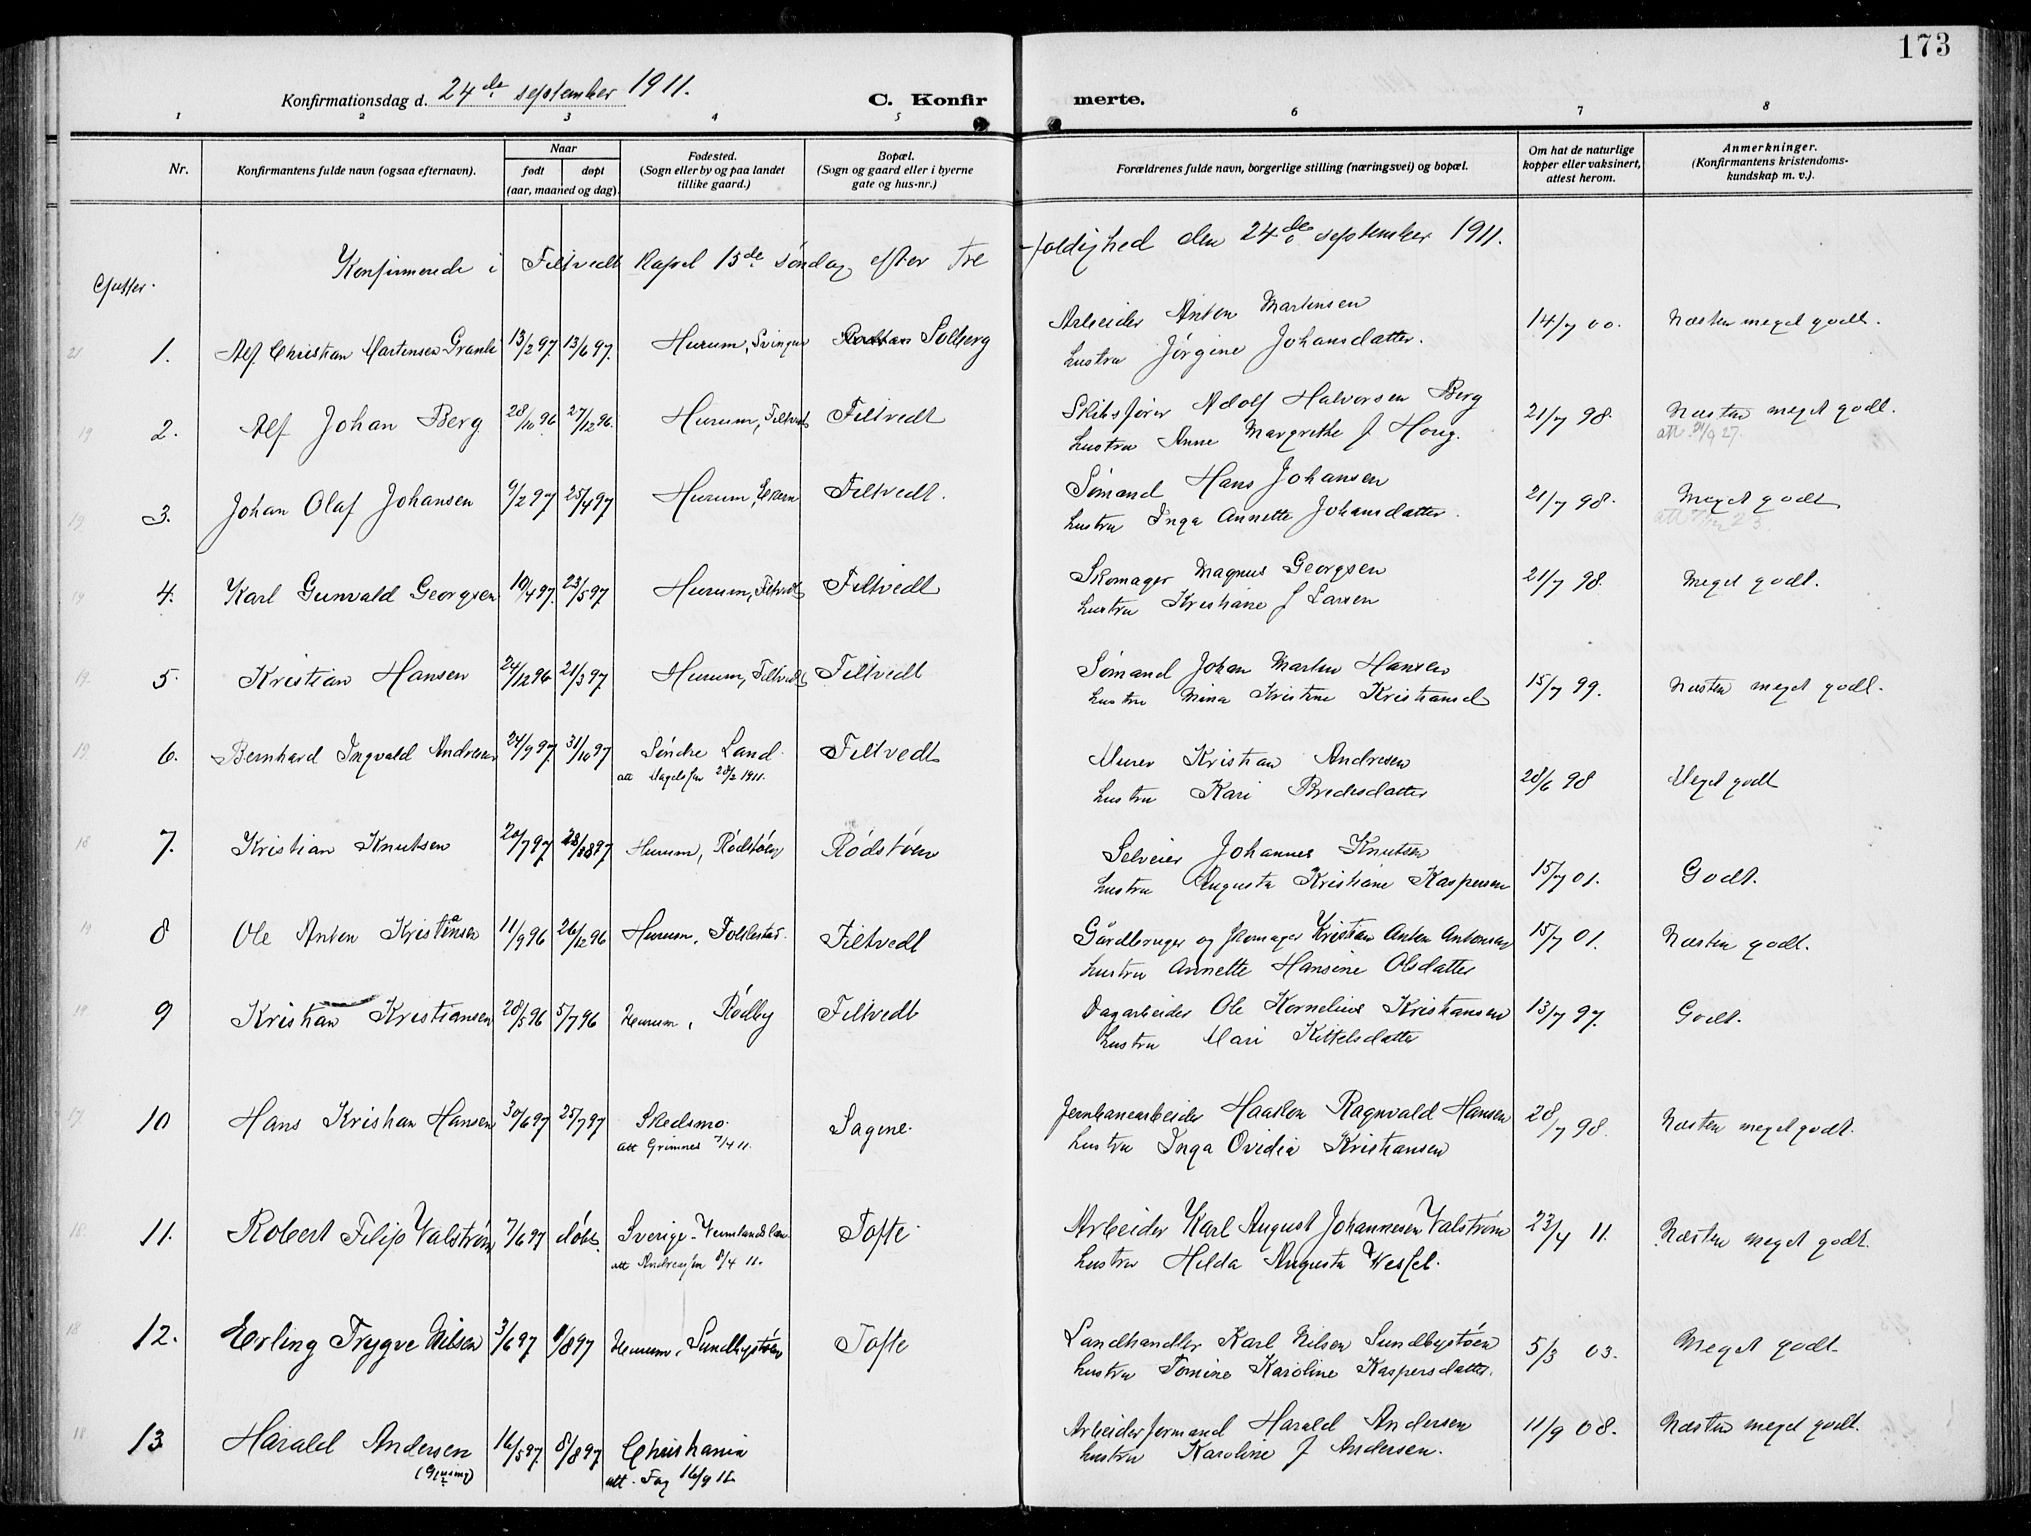 173
Konfirmationsdag d. 24de september 1911.
C. Konfirmerte.
1 2 3 4 5 6 7 8
Nr.
Konfirmantens fulde navn (ogsaa efternavn).
Naar
født
døpt
(aar, maaned og dag).
Fødested.
(Sogn eller by og paa landet
tillike gaard.)
Bopæl.
(Sogn og gaard eller i byerne
gate og hus-nr.)
Forældrenes fulde navn, borgerlige stilling (næringsvei) og bopæl.
Om hat de naturlige
kopper eller vaksinert,
attest herom.
Anmerkninger.
(Konfirmantens kristendoms-
kundskap m. v.).
Konfirmerede i Filtvedt Kapel 15de søndag efter Trefoldighed den 24de september 1911.
Gutter.
1. Alf Christian Martensen 13/2 97 13/6 97. Hurum, Solberg
Arbeider Anton Martinsen 14/7 00. Næsten meget godt.
hustru Jørgine Johansdatter.
2. Alf Johan Berg 28/10 96 27/12 96. Hurum, Filtvedt Filtvedt
Skibsfører Adolf Halvorsen Berg 21/7 98. Næsten meget godt.
hustru Anne Margrethe J Houg.
3. Johan Olaf Johansen 9/2 97 25/4 97 Hurum, Ekern Filtvedt.
Sømand Hans Johansen 21/7 98. Meget godt
hustru Inga Annette Johansdatter.
4. Karl Gunvald Georgsen 19/4 97. 23/5 97 Hurum, Filtvedt Filtvedt
Skomager Magnus Georgsen 21/7 98. Meget godt.
hustru Kristiane J Larsen
5. Kristian Hansen 24/12 96 21/3 97 Hurum, Filtvedt Filtvedt
Sømand Johan Martin Hansen 15/7 99. Næsten meget godt.
hustru Mina Kristine Kristiansd
6. Bernhard Ingvald Andresen 24/9 97 31/10 97 Søndre Land. Filtvedt
att 28/2 1911.
Murer Kristian Andresen 28/6 98 Meget godt
hustru Kari Bredesdatter
7. Kristian Knutsen 20/7 97 Hurum, Rødstøen Rødstøen
Selveier Johannes Knutsen 15/7 01. Godt.
hustru Augusta Kristiane Kaspersen
8 Ole Anton Kristiansen 11/9 96 26/12 96 Hurum, Folkestad. Filtvedt
Gårdbruger og skomager Kristian Anton Antonsen 15/7 01. Næsten godt.
hustru Annette Hansine Olsdatter
9 Kristian Kristiansen 28/5 96 5/7 96 Hurum, Rødby Filtvedt
Dagarbeider Ole Kornelius Kristiansen 13/7 97. Godt.
hustru Mari Kittelsdatter
10 Hans Kristian Hansen 30/6 97 25/7 97 Skedsmo. Sagene.
att Grimnes 7/4 11.
Jernbanearbeider Haakon Ragnvald Hansen 28/7 98. Næsten meget godt.
hustru Inga Ovidia Kristiansen
11. Robert Filip Valstrøm 7/6 97 døbt. Sverige. Vermlandslæn Tofte.
att Andreassen 8/4 11.
Arbeider Karl August Johannesen Valstrøm 23/4 11. Næsten meget godt.
hustru Hilda Augusta Wessel.
12. Erling Trygve Nilsen 3/6 97 9/8 97 Hurum, Sundbystøen Tofte
Landhandler Karl Nilsen Sundbystøen 5/3 03. Meget godt
hustru Tomine Karoline Kaspersdatter.
13 Harald Andersen 16/5 97. 8/8 97 Christiania
att. 16/9 11
Arbeiderformand Harald Andersen 11/9 08. Næsten meget godt.
hustru Karoline J Andersen.